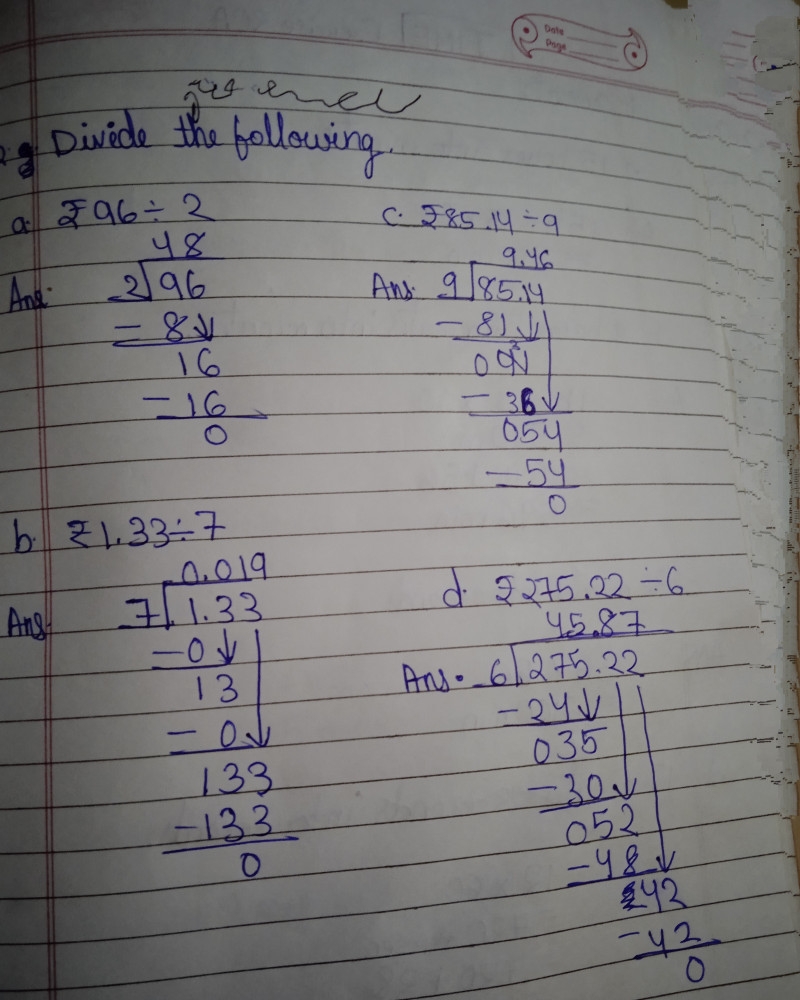 Date
Page
Divide the following.
a. ₹96÷2
48
Ans. 2)96
-8↓
16
-16
0
b. ₹1.33÷7
0.019
Ans. 7)1.33
-0↓
13
-0↓
133
-133
0
c. ₹85.14÷9
9.46
Ans. 9)85.14
-81↓
-36↓
054
-54
0
d. ₹275.22÷6
45.87
Ans. 6)275.22
-24↓
035
-30↓
052
-48↓
42
-42
0